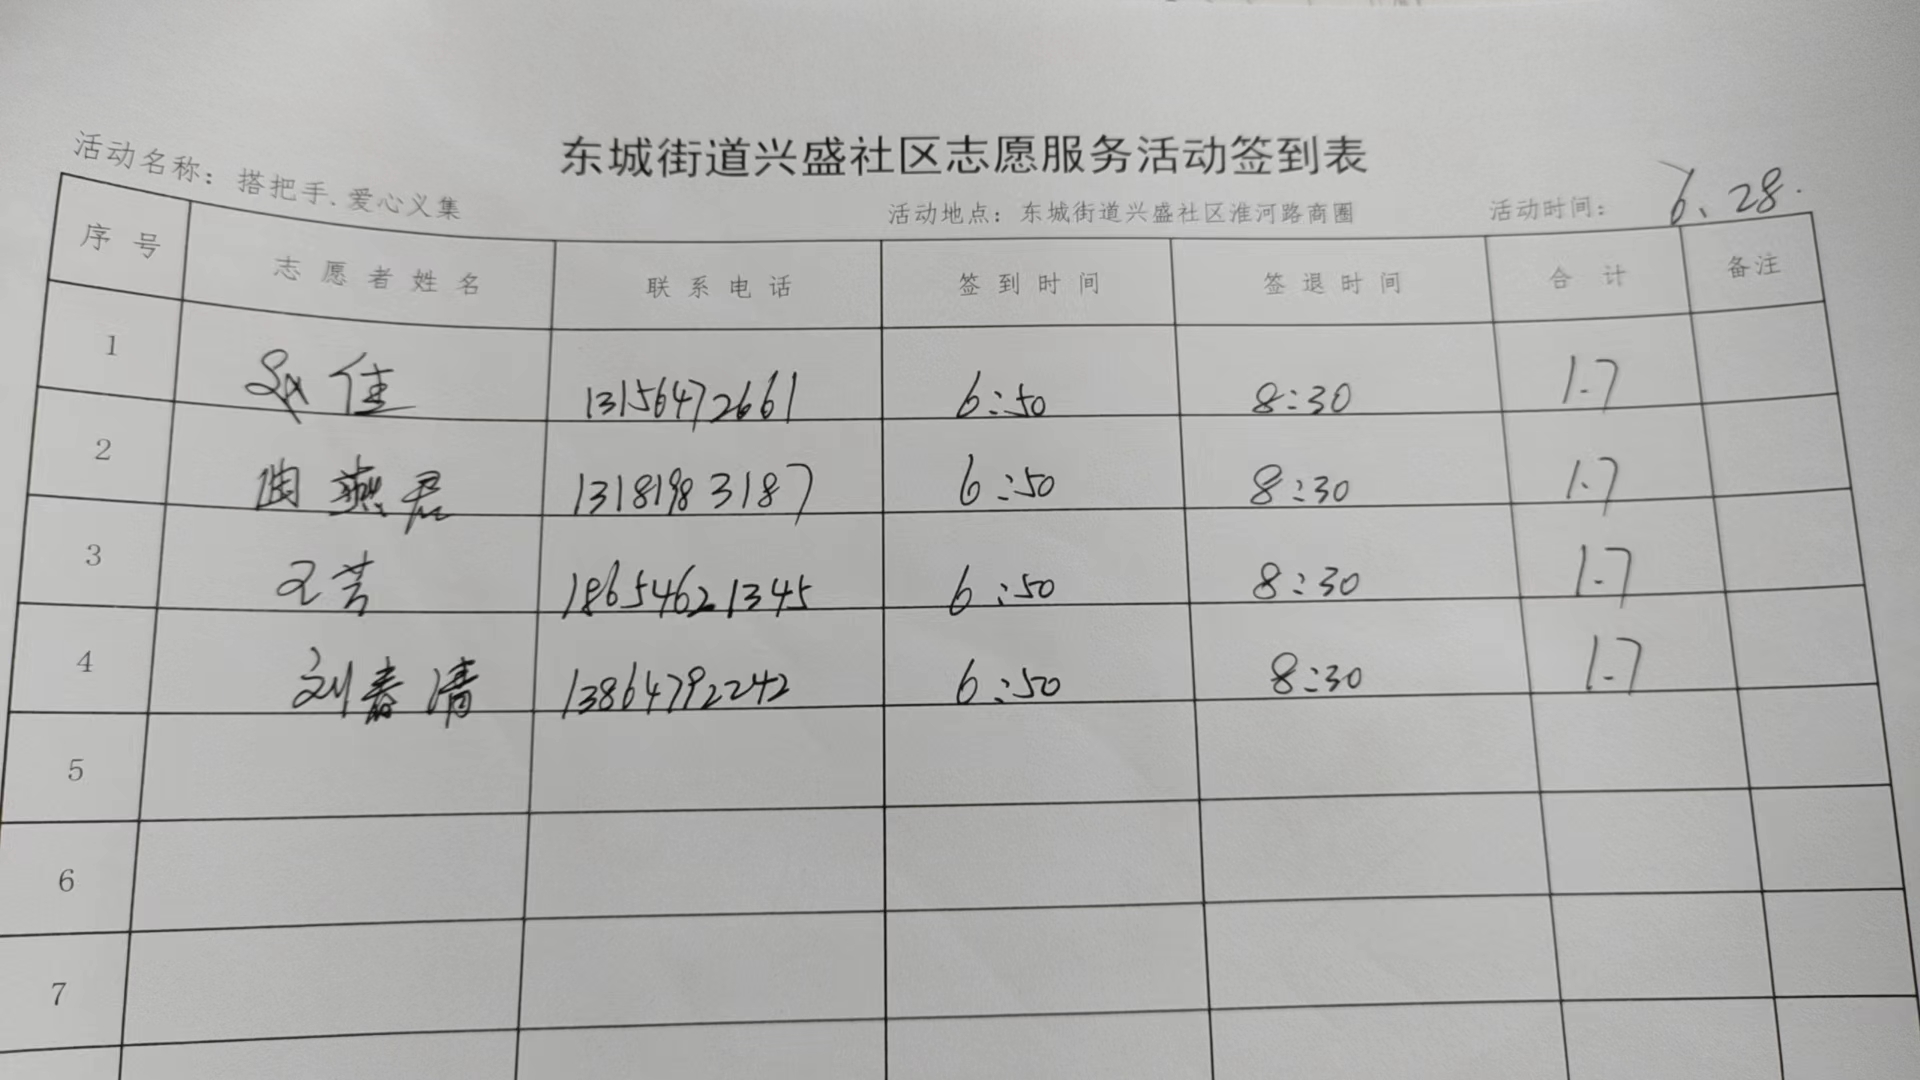 东城街道兴盛社区志愿服务活动签到表
活动名称：搭把手、爱心义集 活动地点：东城街道兴盛社区淮河路商圈 活动时间：6.28.
序号 志愿者姓名 联系电话 签到时间 签退时间 合计 备注
1 佳 13156472661 6:50 8:30 1.7
2 燕君 13181983187 6:50 8:30 1.7
3 王芳 18654621345 6:50 8:30 1.7
4 刘春清 13864792242 6:50 8:30 1.7
5
6
7